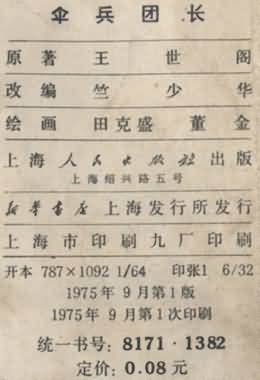 伞兵团长
原著 王世阁
改编 竺少华
绘画 田克盛 董金
上海人民出版社出版
上海绍兴路五号
新华书店上海发行所发行
上海市印刷九厂印刷
开本 787×1092 1/64 印张1 6/32
1975年9月第1版
1975年9月第1次印刷
统一书号: 8171·1382
定价: 0.08元